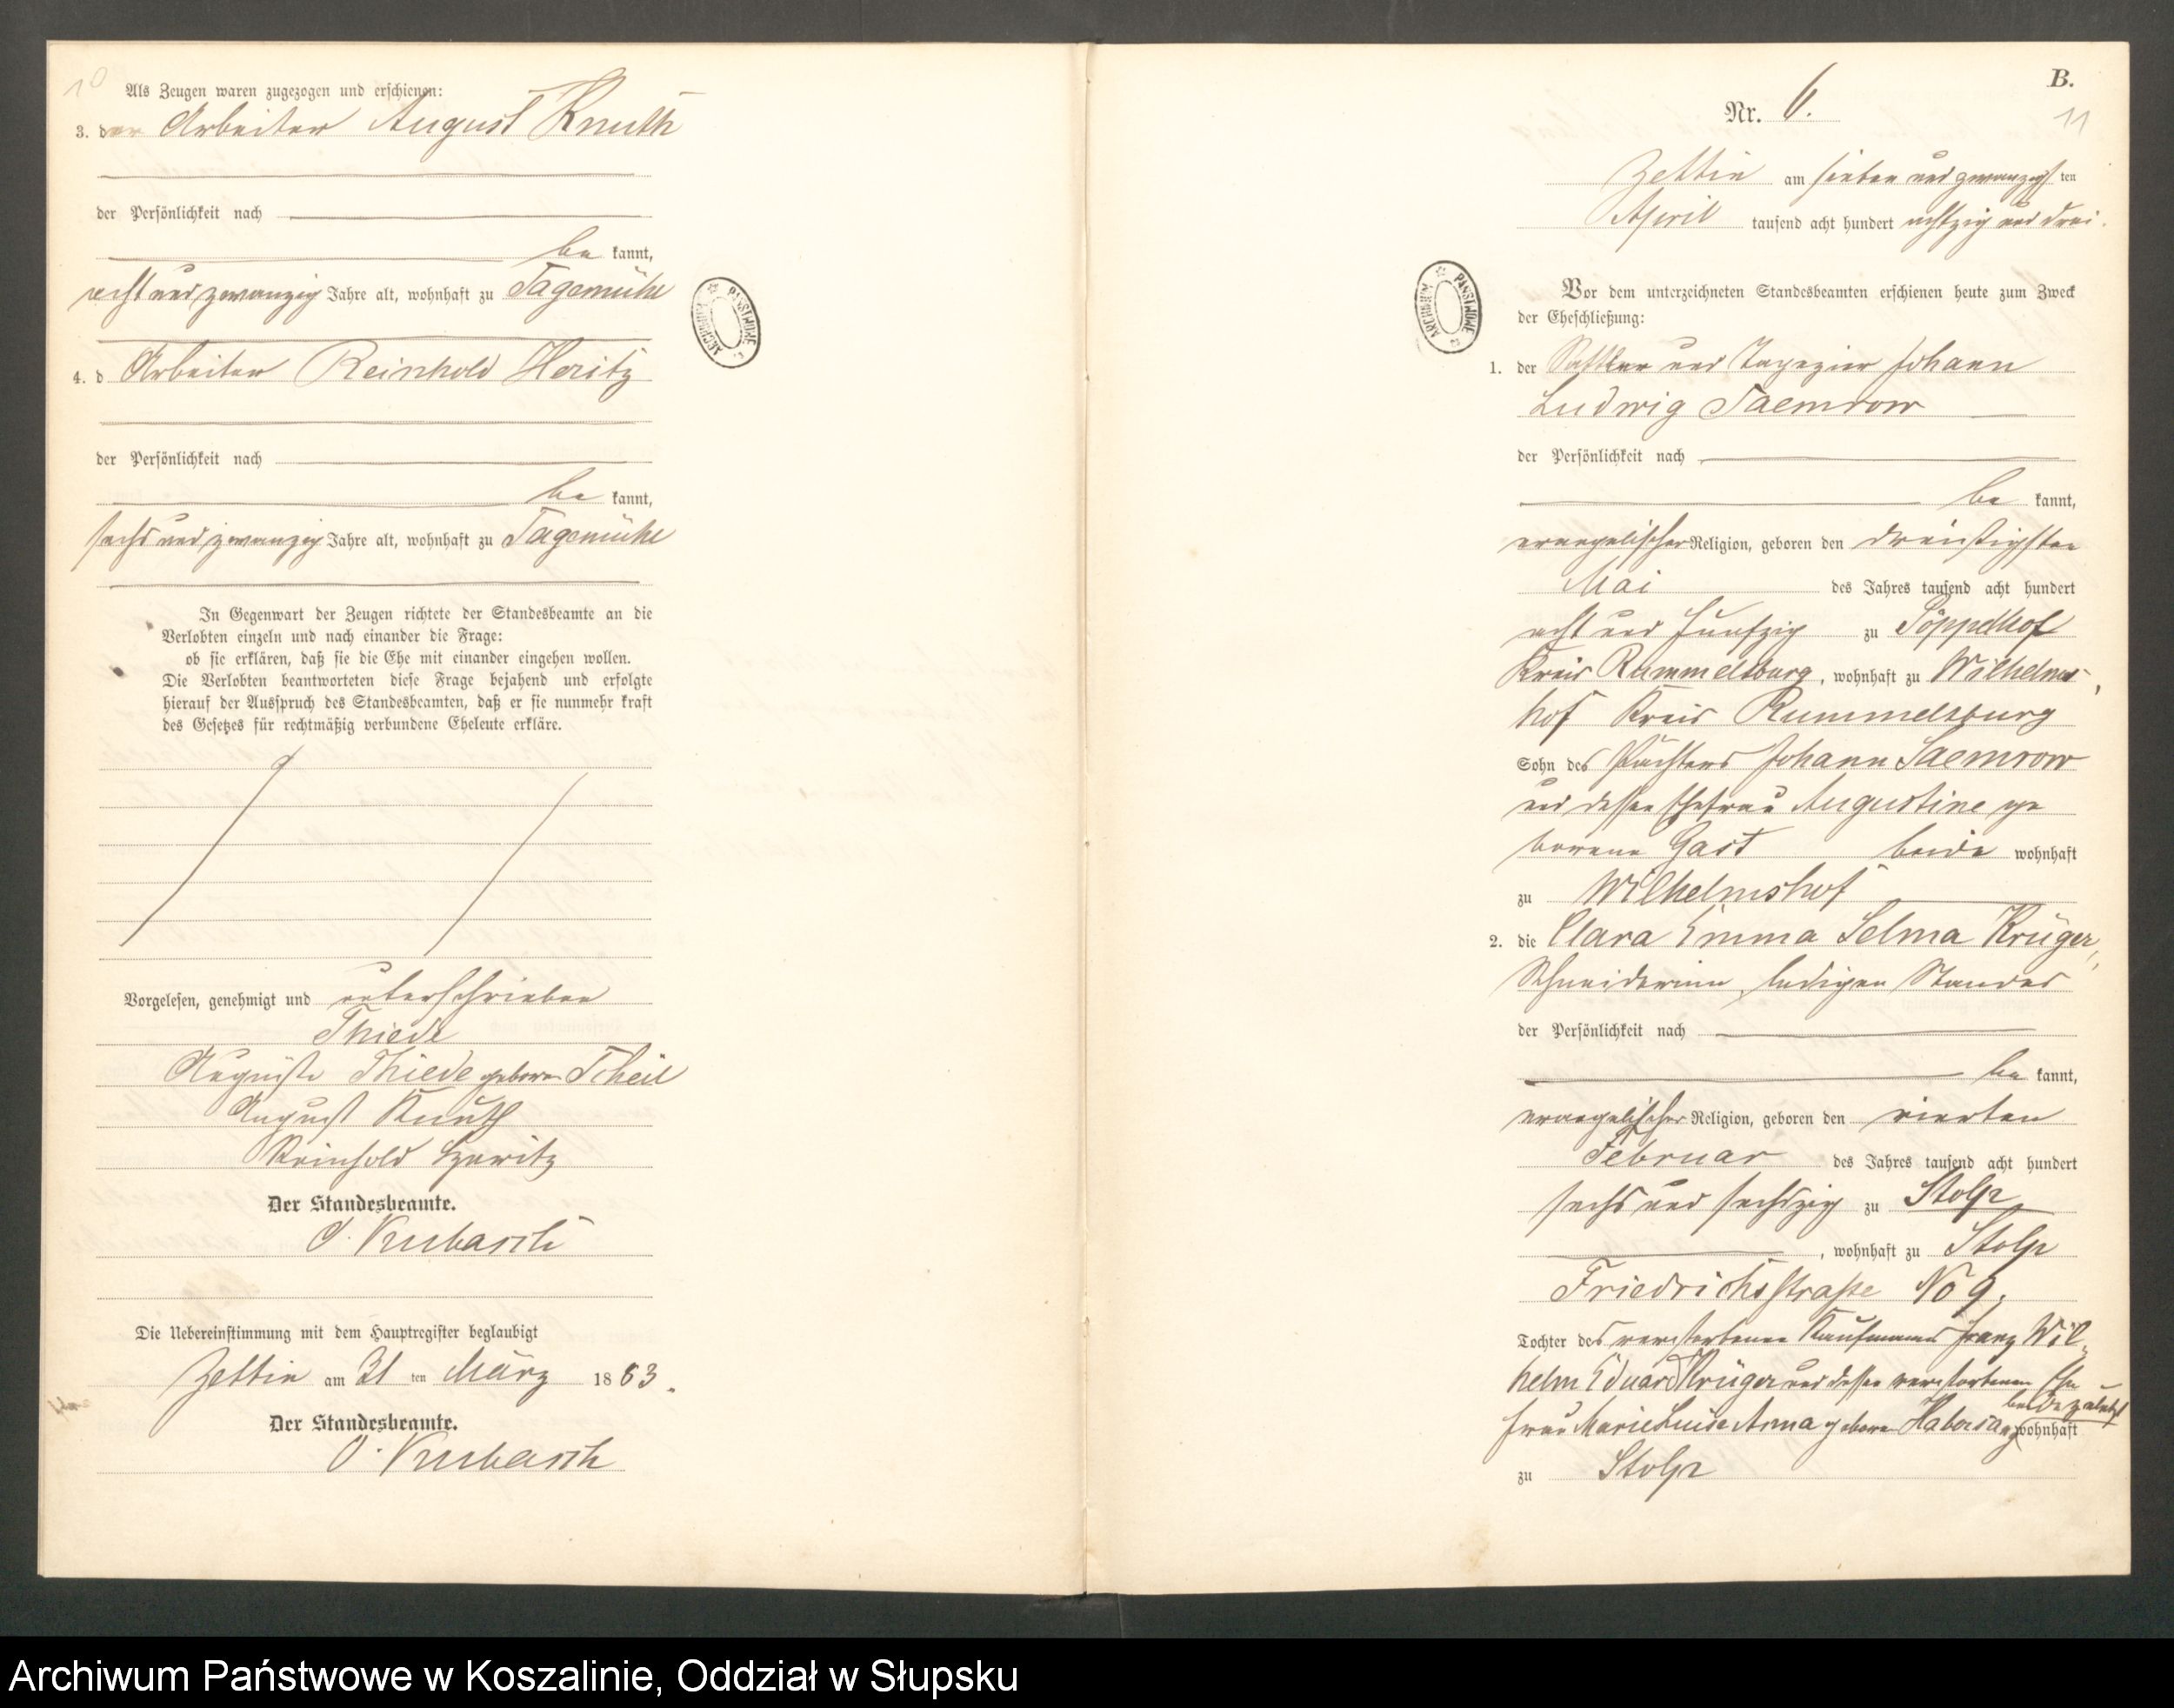 10
Als Zeugen waren zugezogen und erschienen:
3. der Arbeiter August Knuth
der Persönlichkeit nach
be kannt,
acht und zwanzig Jahre alt, wohnhaft zu Sagemühl
4. d Arbeiter Reinhold Heritz
der Persönlichkeit nach
be kannt,
sechs und zwanzig Jahre alt, wohnhaft zu Sagemühl
In Gegenwart der Zeugen richtete der Standesbeamte an die
Verlobten einzeln und nach einander die Frage:
ob sie erklären, daß sie die Ehe mit einander eingehen wollen.
Die Verlobten beantworteten diese Frage bejahend und erfolgte
hierauf der Ausspruch des Standesbeamten, daß er sie nunmehr kraft
des Gesetzes für rechtmäßig verbundene Eheleute erkläre.
Vorgelesen, genehmigt und unterschrieben
Thiede
Auguste Thiede geborene Scheil
August Knuth
Reinhold Heritz
Der Standesbeamte.
O. Kubasch
Die Uebereinstimmung mit dem Hauptregister beglaubigt
Zettin am 31 ten März 1883.
Der Standesbeamte.
O. Kubasch
ARCHIWUM PAŃSTWOWE
B.
11
Nr. 6.
Zettin am sieben und zwanzigsten
April tausend acht hundert achtzig und drei.
Vor dem unterzeichneten Standesbeamten erschienen heute zum Zweck
der Eheschließung:
1. der Sattler und Tapezier Johann
Ludwig Saemrow
der Persönlichkeit nach
be kannt,
evangelischer Religion, geboren den dreißigsten
Mai des Jahres tausend acht hundert
acht und fünfzig zu Pöppelhof
Kreis Rummelsburg, wohnhaft zu Wilhelms-
hof Kreis Rummelsburg
Sohn des Pächters Johann Saemrow
und dessen Ehefrau Augustine ge
borene Gast beide wohnhaft
zu Wilhelmshof
2. die Clara Emma Selma Krüger,
Schneiderin, ledigen Standes
der Persönlichkeit nach
be kannt,
evangelischer Religion, geboren den vierten
Februar des Jahres tausend acht hundert
sechs und sechszig zu Stolp
, wohnhaft zu Stolp
Friedrichsstraße No 9,
Tochter des verstorbenen Kaufmanns Franz Wil-
helm Eduard Krüger und dessen verstorbenen Ehe
frau Marie Luise Anna geborene Habersang beide zuletzt wohnhaft
zu Stolp
ARCHIWUM PAŃSTWOWE
Archiwum Państwowe w Koszalinie, Oddział w Słupsku